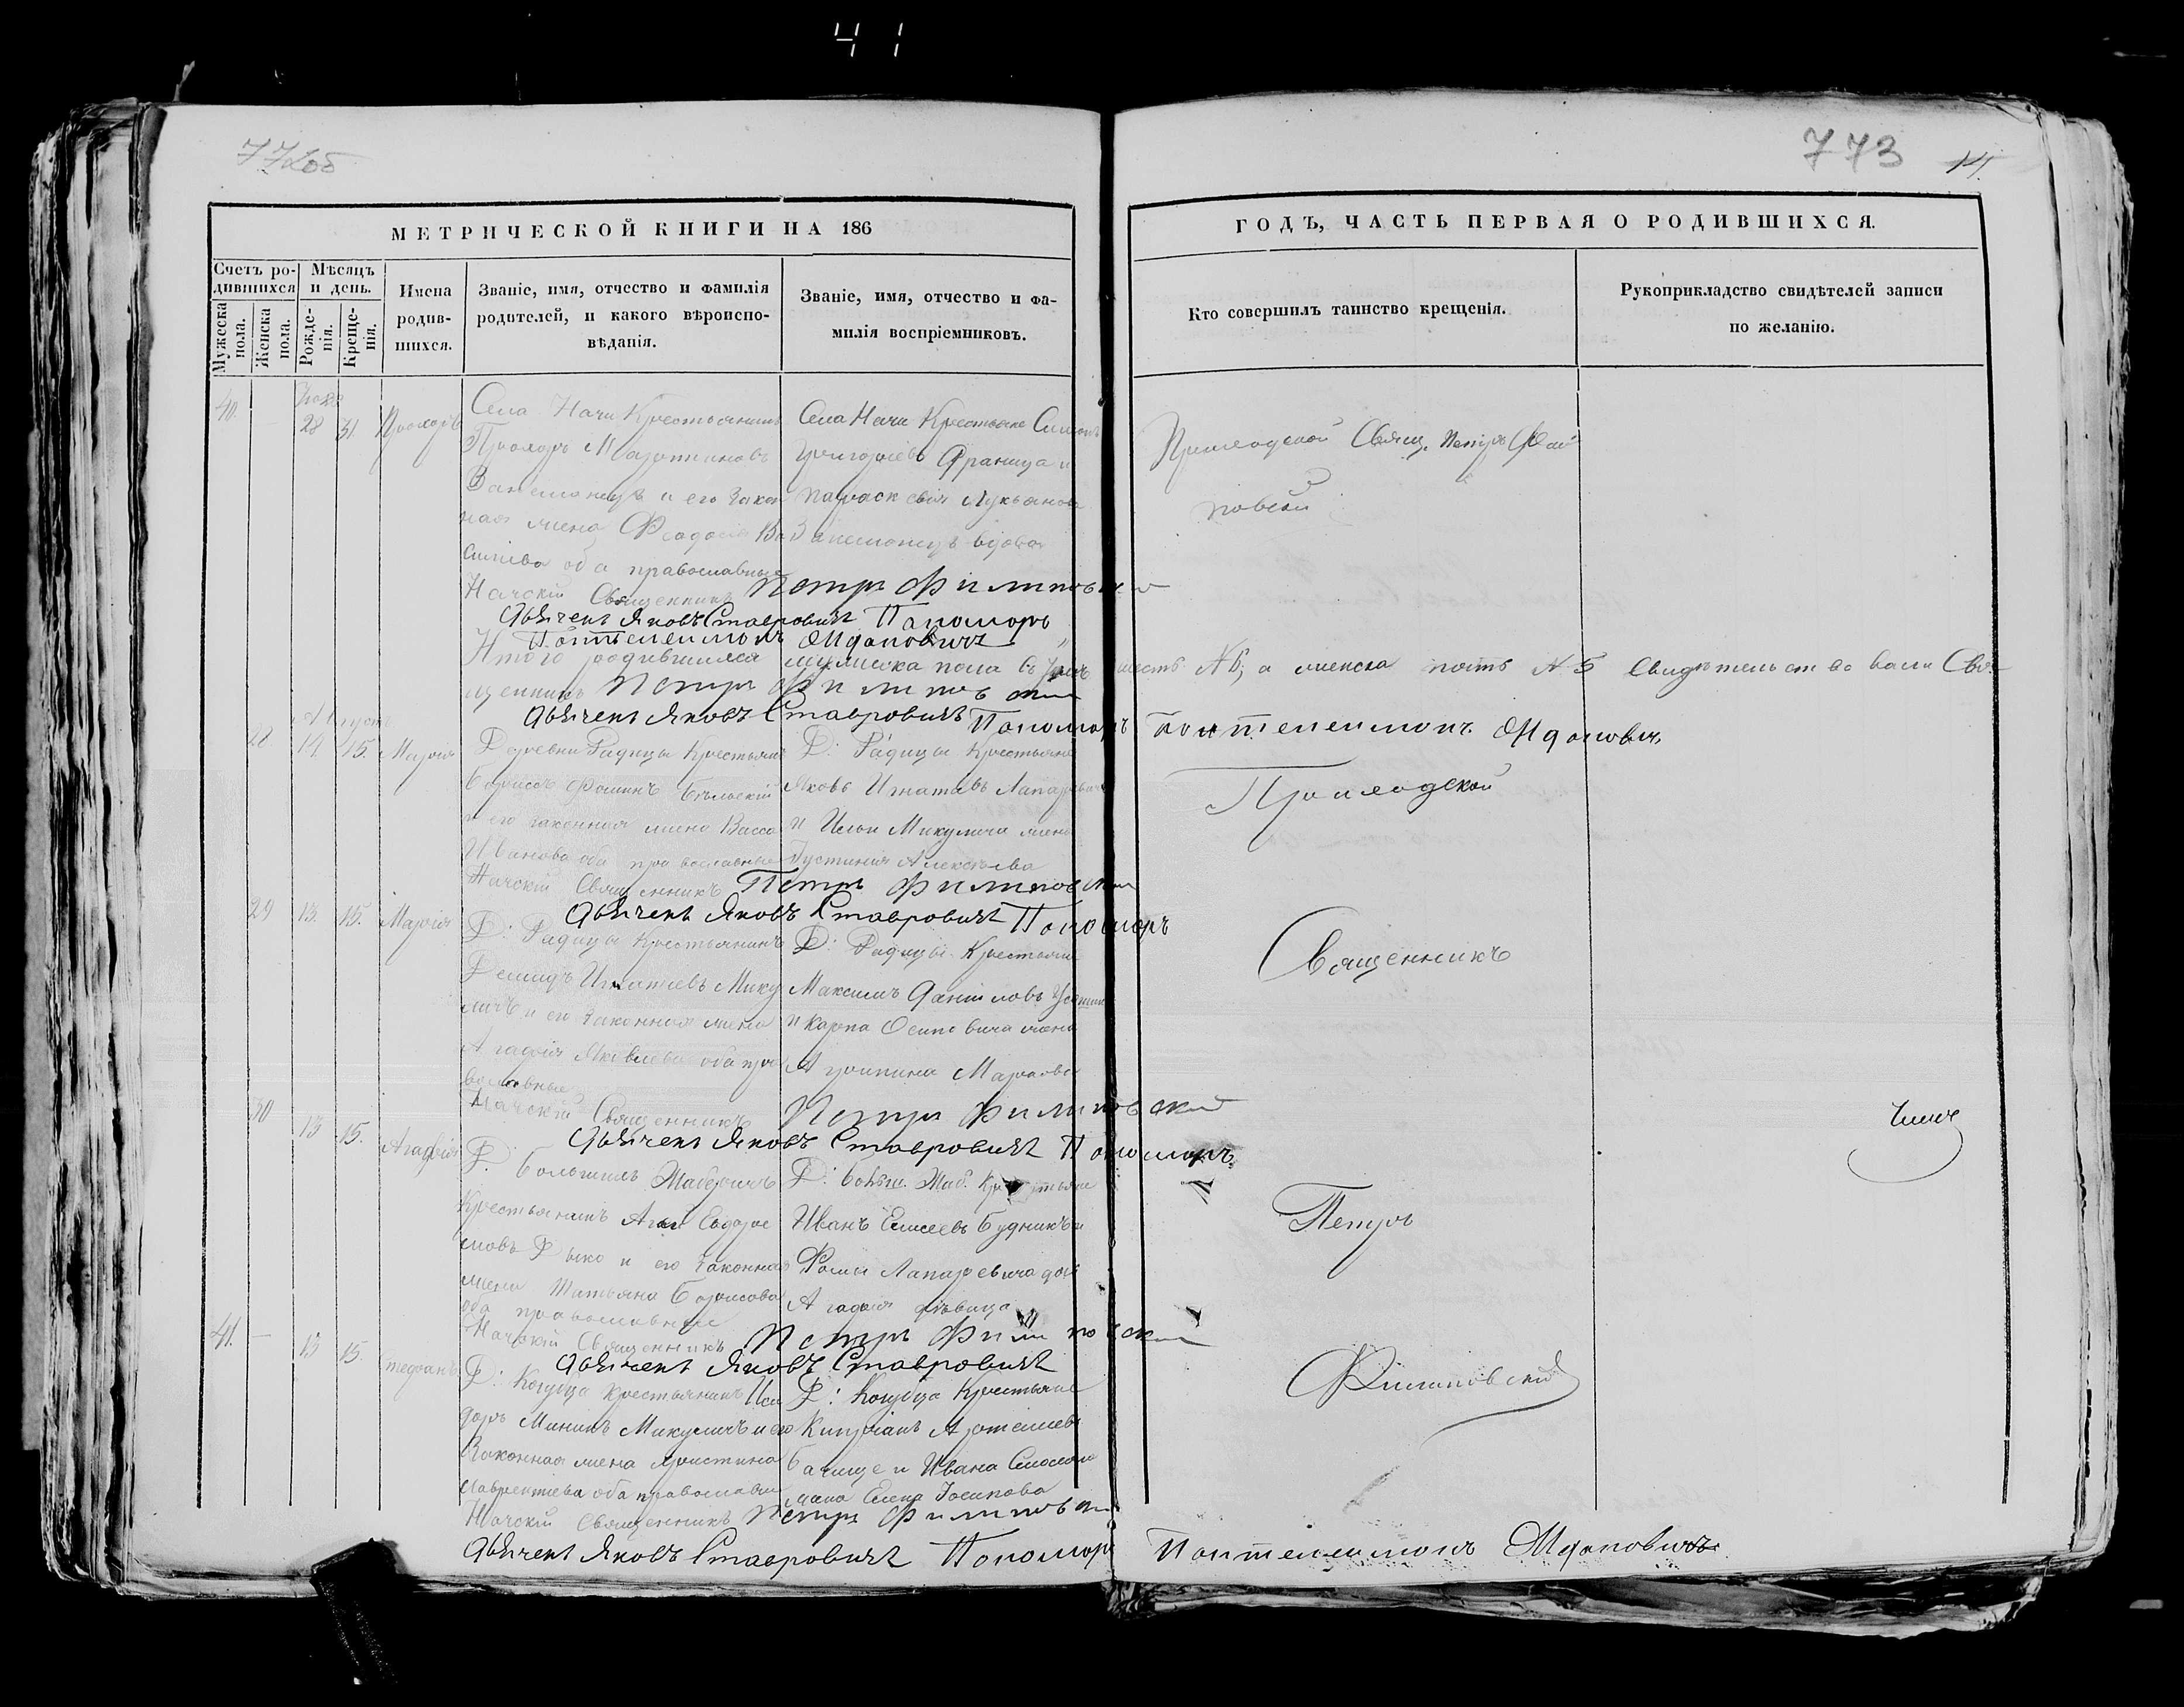 41
772об
773
14.
МЕТРИЧЕСКОЙ КНИГИ НА 186
ГОДЪ, ЧАСТЬ ПЕРВАЯ О РОДИВШИХСЯ.
Счетъ ро-
дившихся
Мужеска
пола.
Женска
пола.
Мѣсяцъ
и день.
Рожде-
нія.
Креще-
нія.
Имена
родив-
шихся.
Званіе, имя, отчество и фамилія
родителей, и какого вѣроиспо-
вѣданія.
Званіе, имя, отчество и фа-
милія воспріемниковъ.
Кто совершилъ таинство крещенія.
Рукоприкладство свидѣтелей записи
по желанію.
40. — 28 31. Прохоръ
Села Начи Крестьянинъ
Прохоръ Мартиновъ
и его закон
ная жена Феодосія Ва
силіева оба православные
Села Начи Крестьяне Симонъ
Григоріевъ Франица и
Параскевія Лукьянова
вдова
Приходской Свящ. Петръ Фили
повскій
Начскій Священникъ Петръ Филиповскій
Дьячекъ Яковъ Ставровичъ Пономорь
Пантелеимонъ Ждановичъ
Итого родившихся мужеска пола въ шесть №6, а женска пять №5 Свидѣтельствовали Свя-
щенникъ Петръ Филиповскій
Дьячекъ Яковъ Ставровичъ Пономорь Пантелеимонъ Ждановичъ
Августъ
28 14. 15. Марія
Деревни Радицы Крестьян
Борисъ Фоминъ Бѣльскій
и его законная жена Васса
Иванова оба православные
Д: Радицы Крестьяне
Яковъ Игнатовъ Лапаревичъ
и Ильи Микулича жена
Іустинія Алексѣева
Приходской
Начскій Священникъ Петръ Филиповскій
Дьячекъ Яковъ Ставровичъ Пономорь
29 13. 15. Марія
Д: Радицы Крестьянинъ
Демидъ Игнатіевъ Мику
личъ и его законная жена
Агафія Яковлева оба пра
вославные
Д: Радицы Крестьяне
Максимъ Даніиловъ
и Карпа Осиповича жена
Агрипина Маркова
Священникъ
Начскій Священникъ Петръ Филиповскій
Дьячекъ Яковъ Ставровичъ Пономорь
30 13 15. Агафія
Д. Большихъ Жаберичъ
Крестьянинъ
и его законная
жена Татьяна Борисова
оба православные
Д: Больш. Жаб. Крестьяне
Иванъ Елисеевъ Будникъ и
Фомы Лапаревича доч
Агафія дѣвица
Петръ
Начскій Священникъ Петръ Филиповскій
Дьячекъ Яковъ Ставровичъ
41. — 13 15. Стефанъ
Д: Крестьянинъ Иси
доръ Мининъ Микуличъ и его
Законная жена Христина
Лаврентіева оба православн
Д: Крестьяне
Кипріанъ Артеміевъ
и Ивана
жена Елена Іосипова
Филиповскій
Начскій Священникъ Петръ Филиповскій
Дьячекъ Яковъ Ставровичъ Пономорь Пантелеимонъ Ждановичъ